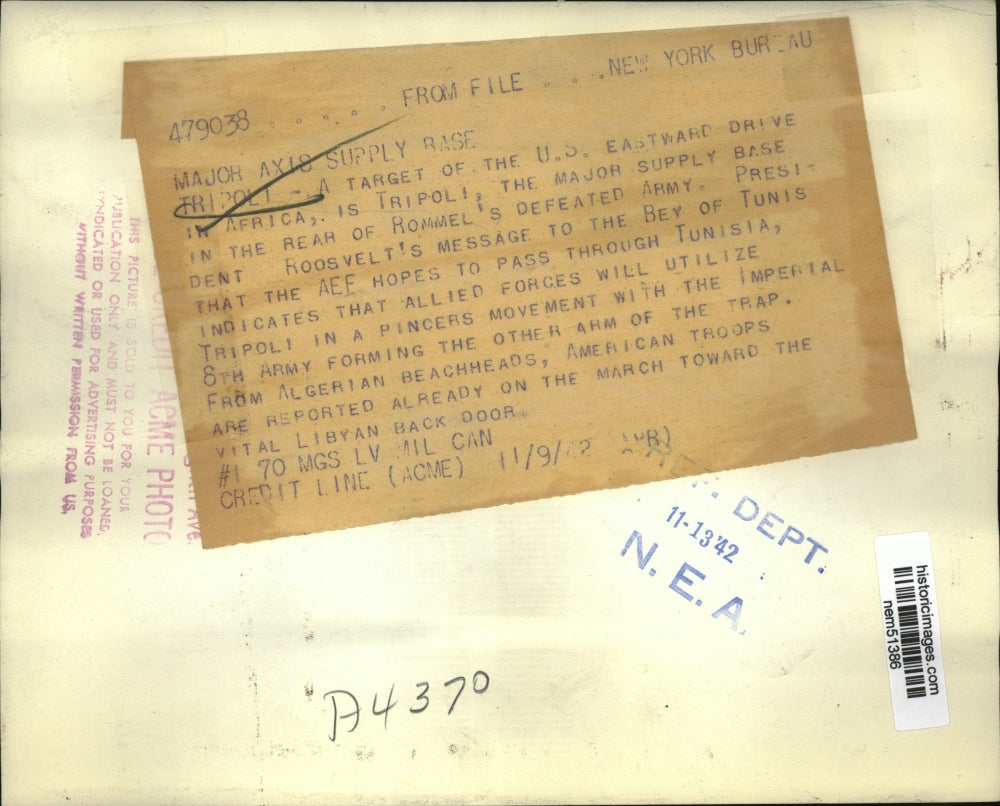 479038 . . . . . FROM FILE . . . NEW YORK BUREAU
MAJOR AXIS SUPPLY BASE
TRIPOLI - A TARGET OF THE U.S. EASTWARD DRIVE
IN AFRICA, IS TRIPOLI, THE MAJOR SUPPLY BASE
IN THE REAR OF ROMMEL'S DEFEATED ARMY. PRESI-
DENT ROOSVELT'S MESSAGE TO THE BEY OF TUNIS
THAT THE AEF HOPES TO PASS THROUGH TUNISIA,
INDICATES THAT ALLIED FORCES WILL UTILIZE
TRIPOLI IN A PINCERS MOVEMENT WITH THE IMPERIAL
8TH ARMY FORMING THE OTHER ARM OF THE TRAP.
FROM ALGERIAN BEACHHEADS, AMERICAN TROOPS
ARE REPORTED ALREADY ON THE MARCH TOWARD THE
VITAL LIBYAN BACK DOOR.
#1 70 MGS LV MIL CAN
CREDIT LINE (ACME) 11/9/42 (WR)
ACME PHOTO
AVE.
THIS PICTURE IS SOLD TO YOU FOR YOUR
PUBLICATION ONLY AND MUST NOT BE LOANED,
SYNDICATED OR USED FOR ADVERTISING PURPOSES
WITHOUT WRITTEN PERMISSION FROM US.
REF. DEPT.
11-13'42
N. E. A.
A4370
historicimages.com
nem51386